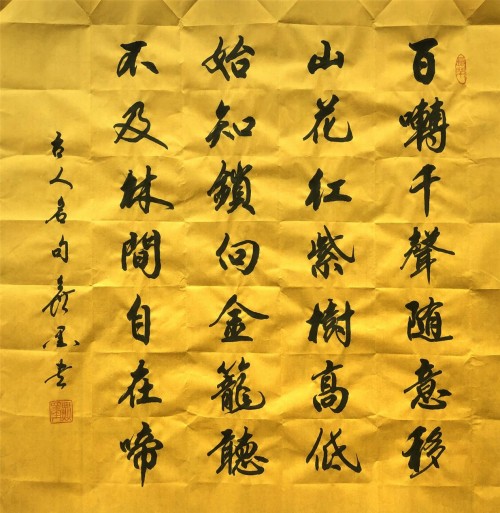 百囀千聲随意移
山花红紫樹高低
始知鎖向金籠聽
不及林間自在啼
古人名句 墨书